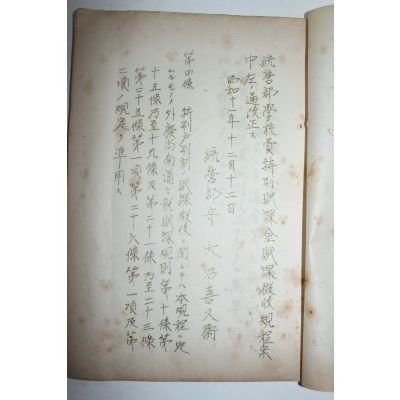 統営郡学校費特別賦課金賦課徴収規程案
中左ノ通改正ス
昭和十一年十二月十二日
統営郡守 大 喜久衛
第四條 特別戸別割ノ賦課徴収ニ関シテハ本規程ニ定
ムルモノノ外慶尚南道 賦課規則第十條第
十五條乃至十九條及第二十一條乃至二十三條
第二十五條第一項第二十六條第一項及第
二項ノ規定ヲ準用ス